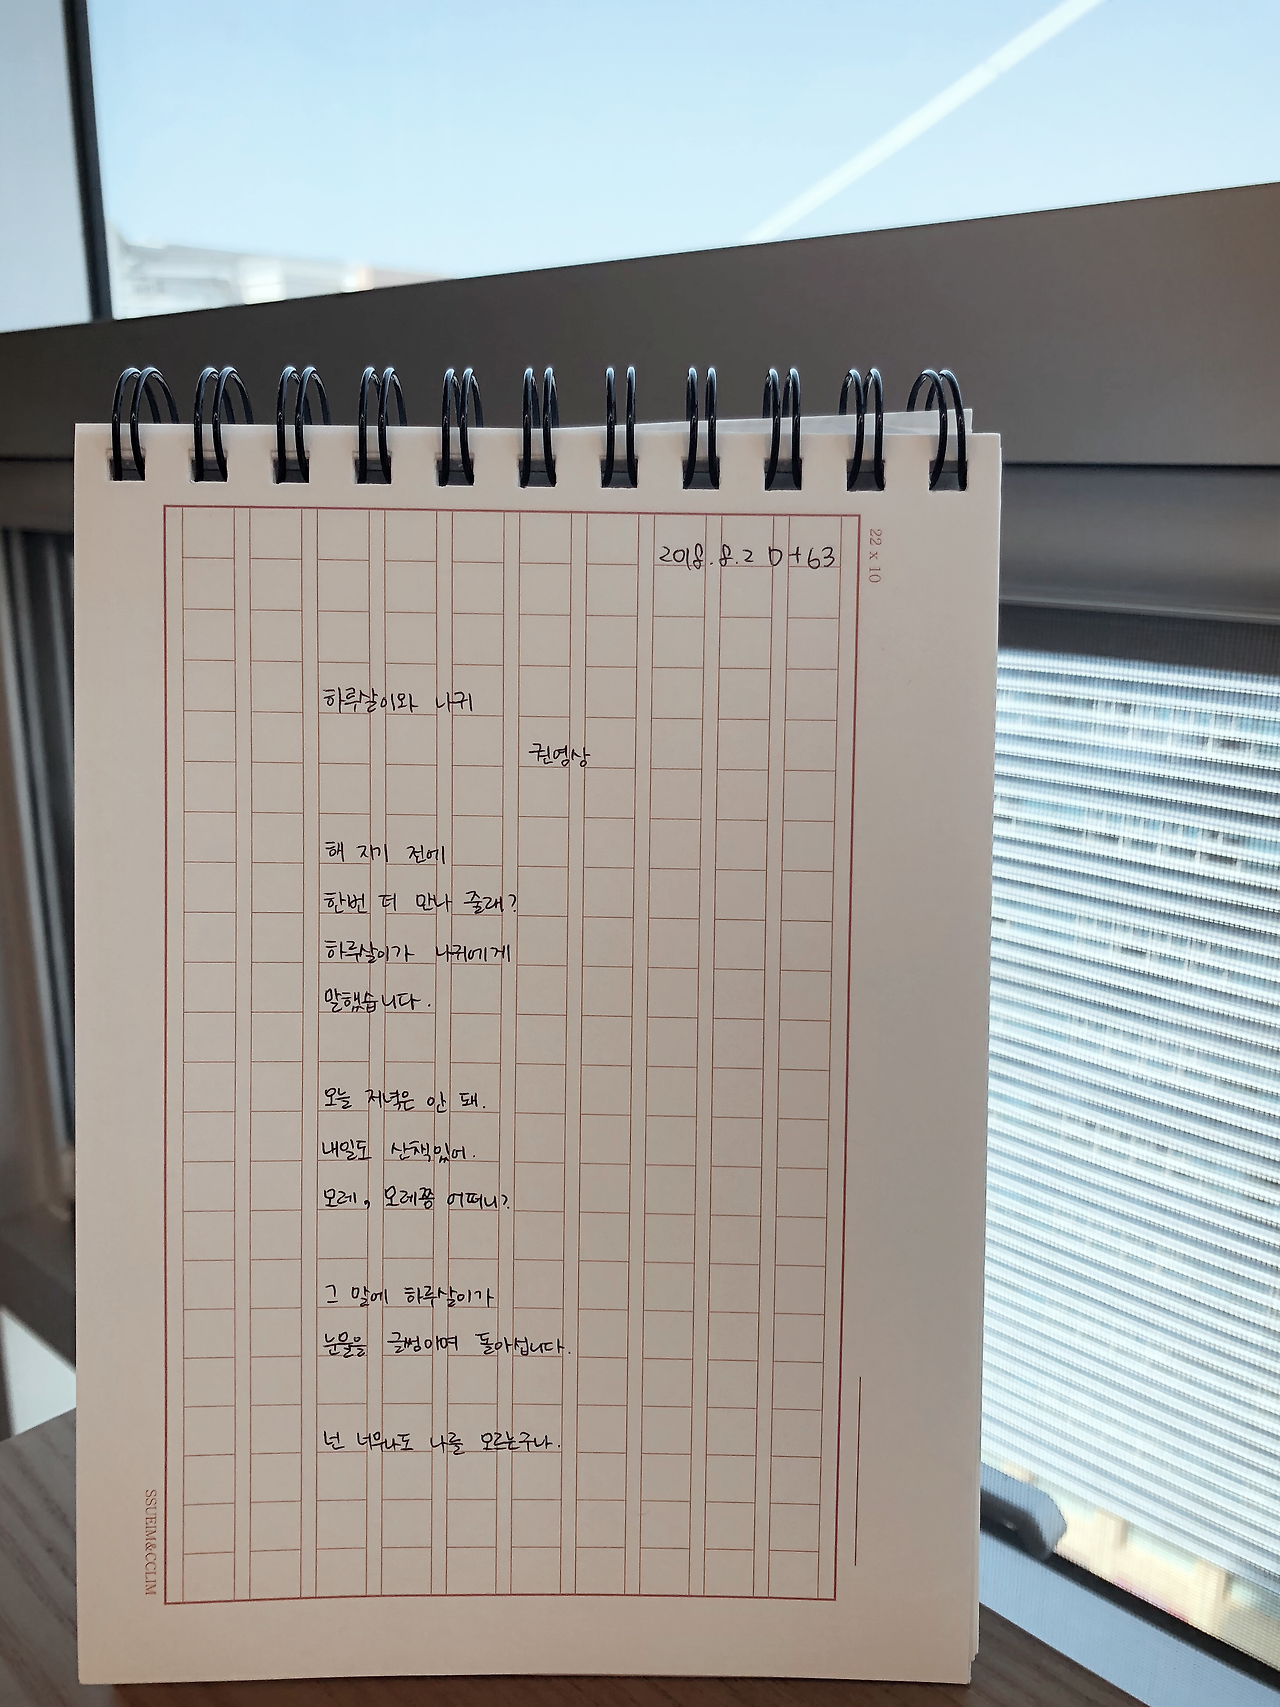 22 x 10
2018. 8. 2 D+63
하루살이와 나귀
권영상
해 지기 전에
한번 더 만나 줄래?
하루살이가 나귀에게
말했습니다.
오늘 저녁은 안 돼.
내일도 산책있어.
모레, 모레쯤 어떠니?
그 말에 하루살이가
눈물을 글썽이며 돌아섭니다.
넌 너무나도 나를 모르는구나.
SSUEIM&CCLIM